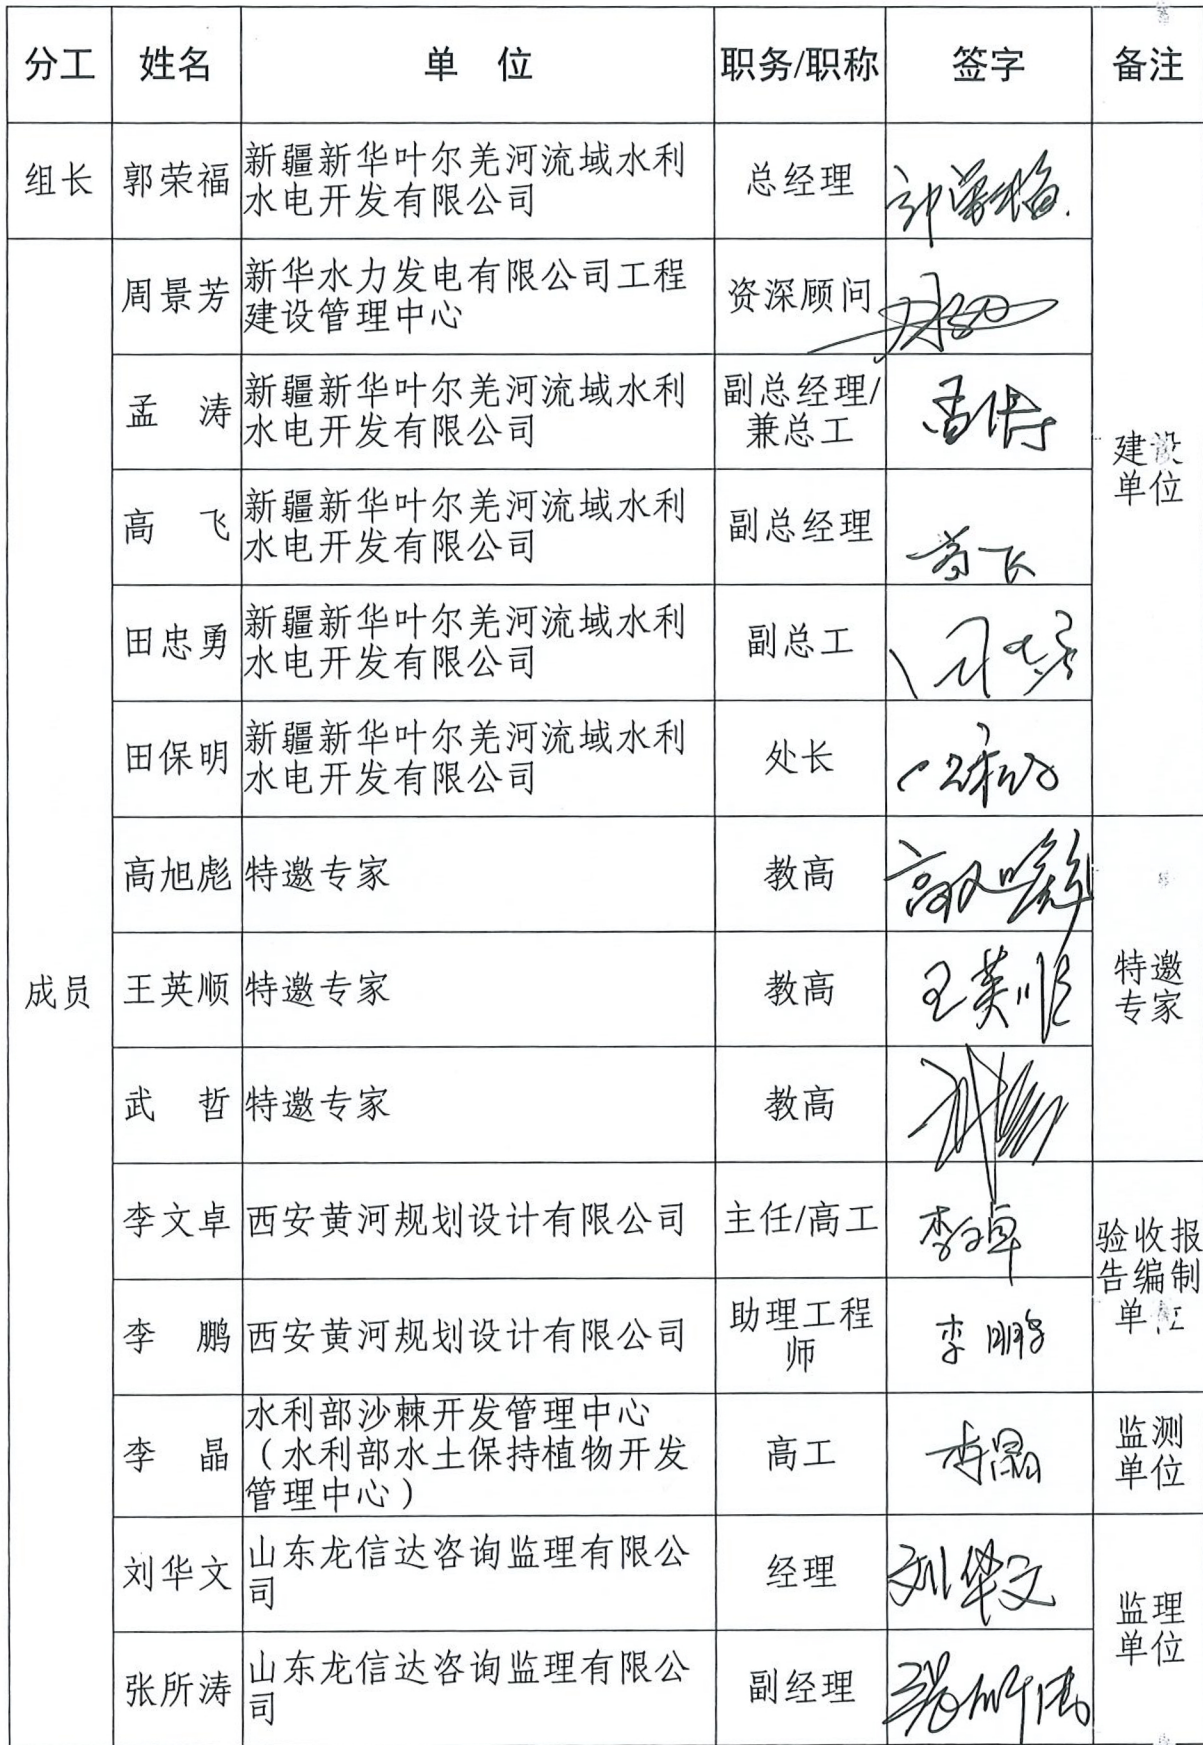 分工 姓名 单 位 职务/职称 签字 备注
组长 郭荣福 新疆新华叶尔羌河流域水利
水电开发有限公司 总经理
成员 周景芳 新华水力发电有限公司工程
建设管理中心 资深顾问
孟 涛 新疆新华叶尔羌河流域水利
水电开发有限公司 副总经理/
兼总工
建设
单位
高 飞 新疆新华叶尔羌河流域水利
水电开发有限公司 副总经理 高飞
田忠勇 新疆新华叶尔羌河流域水利
水电开发有限公司 副总工
田保明 新疆新华叶尔羌河流域水利
水电开发有限公司 处长
高旭彪 特邀专家 教高
王英顺 特邀专家 教高 王英顺
特邀
专家
武 哲 特邀专家 教高
李文卓 西安黄河规划设计有限公司 主任/高工 李文卓
验收报
告编制
单位
李 鹏 西安黄河规划设计有限公司 助理工程
师 李鹏
李 晶 水利部沙棘开发管理中心
（水利部水土保持植物开发
管理中心） 高工 李晶
监测
单位
刘华文 山东龙信达咨询监理有限公
司 经理 刘华文
监理
单位
张所涛 山东龙信达咨询监理有限公
司 副经理 张所涛